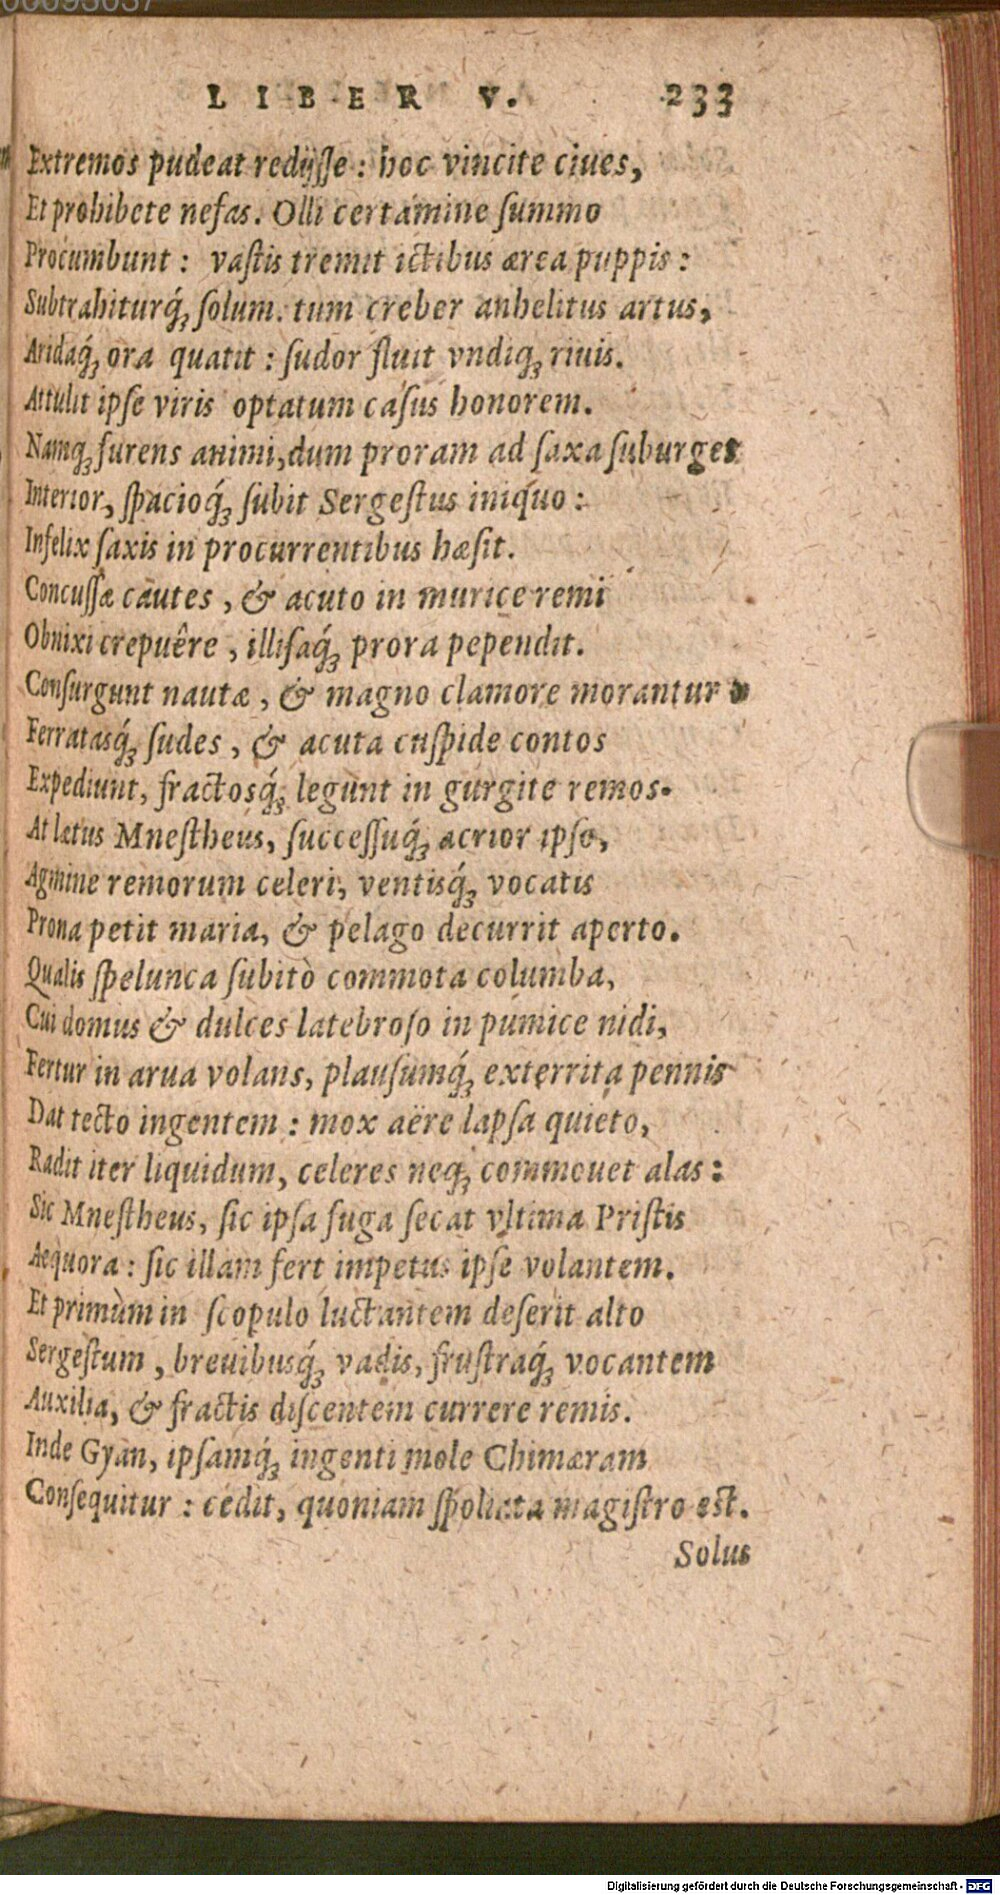 LIBER V. 233
Extremos pudeat redijſſe : hoc vincite ciues,
Et prohibete nefas. Olli certamine ſummo
Procumbunt : vaſtis tremit ictibus ærea puppis :
Subtrahiturq́ꝫ ſolum. tum creber anhelitus artus,
Aridaq́ꝫ ora quatit : ſudor fluit vndiqꝫ riuis.
Attulit ipſe viris optatum caſus honorem.
Namqꝫ furens animi, dum proram ad ſaxa ſuburget
Interior, ſpacioq́ꝫ ſubit Sergeſtus iniquo :
Infelix ſaxis in procurrentibus hæſit.
Concuſſæ cautes , & acuto in murice remi
Obnixi crepuêre , illiſaq́ꝫ prora pependit.
Conſurgunt nautæ , & magno clamore morantur
Ferratasq́ꝫ ſudes , & acuta cuſpide contos
Expediunt, fractosq́ꝫ legunt in gurgite remos.
At lætus Mneſtheus, ſucceſſuq́ꝫ acrior ipſo,
Agmine remorum celeri, ventisq́ꝫ vocatis
Prona petit maria, & pelago decurrit aperto.
Qualis ſpelunca ſubitò commota columba,
Cui domus & dulces latebroſo in pumice nidi,
Fertur in arua volans, plauſumq́ꝫ exterrita pennis
Dat tecto ingentem : mox aëre lapſa quieto,
Radit iter liquidum, celeres neqꝫ commouet alas :
Sic Mneſtheus, ſic ipſa fuga ſecat vltima Priſtis
Aequora : ſic illam fert impetus ipſe volantem.
Et primùm in ſcopulo luctantem deſerit alto
Sergeſtum , breuibusq́ꝫ vadis, fruſtraq́ꝫ vocantem
Auxilia, & fractis diſcentem currere remis.
Inde Gyan, ipſamq́ꝫ ingenti mole Chimæram
Conſequitur : cedit, quoniam ſpoliata magiſtro eſt.
Solus
Digitalisierung gefördert durch die Deutsche Forschungsgemeinschaft - DFG